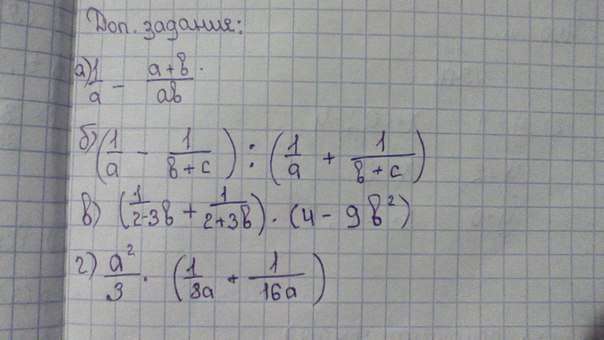 Доп. задание:
а) 1/a - (a+b)/ab.
б) (1/a - 1/(b+c)) : (1/a + 1/(b+c))
в) (1/(2-3b) + 1/(2+3b)) · (4 - 9b²)
г) a²/3 · (1/8a + 1/16a)